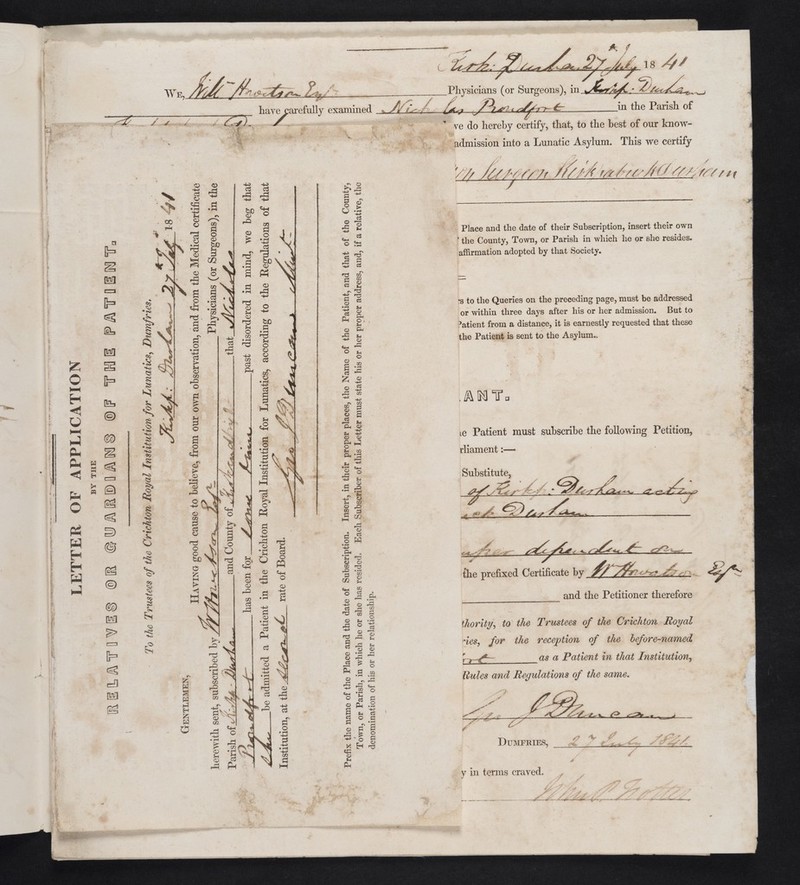 Kirkp: Durham 27 July 1841
WE, Will Howatson Esqr Physicians (or Surgeons), in Kirkp: Durham
have carefully examined Nicholas Proudfoot in the Parish of
we do hereby certify, that, to the best of our know-
admission into a Lunatic Asylum. This we certify
Surgeon Kirkpatrick Durham
Place and the date of their Subscription, insert their own
the County, Town, or Parish in which he or she resides.
affirmation adopted by that Society.
s to the Queries on the preceding page, must be addressed
or within three days after his or her admission. But to
Patient from a distance, it is earnestly requested that these
the Patient is sent to the Asylum.
ANT.
e Patient must subscribe the following Petition,
rliament:—
Substitute,
of Kirkp: Durham acting
Durham
dependent
the prefixed Certificate by W Howatson Esqr
and the Petitioner therefore
thority, to the Trustees of the Crichton Royal
ries, for the reception of the before-named
as a Patient in that Institution,
Rules and Regulations of the same.
Geo J Duncan
DUMFRIES, 27 July 1841.
y in terms craved.
LETTER OF APPLICATION
BY THE
RELATIVES OR GUARDIANS OF THE PATIENT.
To the Trustees of the Crichton Royal Institution for Lunatics, Dumfries.
Kirkp: Durham 27 July 1841
GENTLEMEN,
HAVING good cause to believe, from our own observation, and from the Medical certificate
herewith sent, subscribed by W Howatson Esqr Physicians (or Surgeons), in the
Parish of Kirkp. Durham and County of that Nicholas
Proudfoot has been for some time past disordered in mind, we beg that
she be admitted a Patient in the Crichton Royal Institution for Lunatics, according to the Regulations of that
Institution, at the Second rate of Board.
Geo J Duncan
Prefix the name of the Place and the date of Subscription. Insert, in their proper places, the Name of the Patient, and that of the County,
Town, or Parish, in which he or she has resided. Each Subscriber of this Letter must state his or her proper address, and, if a relative, the
denomination of his or her relationship.